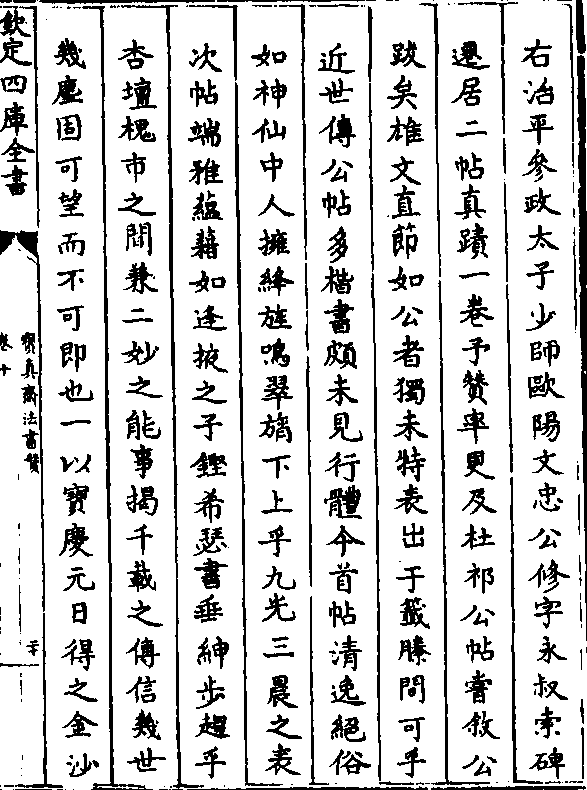 右治平參政太子少師歐陽文忠公修字永叔索碑
還居二帖真蹟一卷予賛率更及杜祁公帖嘗敘公
跋矣雄文直節如公者獨未特表出于籤縢問可乎
近世傳公帖多楷書頗未見行體今首帖清逸絕俗
如神仙中人擁絳旌鳴翠旒下上乎九光三晨之表
次帖端雅蘊藉如逢掖之子鏗希瑟書垂紳步趨乎
杏壇槐市之間兼二妙之能事揭千載之傳信幾世
幾塵固可望而不可即也一以寶慶元日得之金沙
欽定四庫全書
寶真齋法書賛
卷十